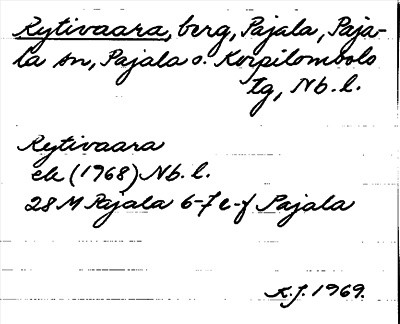 Rytivaara, berg, Pajala, Paja-
la sn, Pajala o. Korpilombolo
tg, Nb. l.
Rytivaara
ek (1968) Nb. l.
28 M Pajala 6-7 e-f Pajala
K.J. 1969.